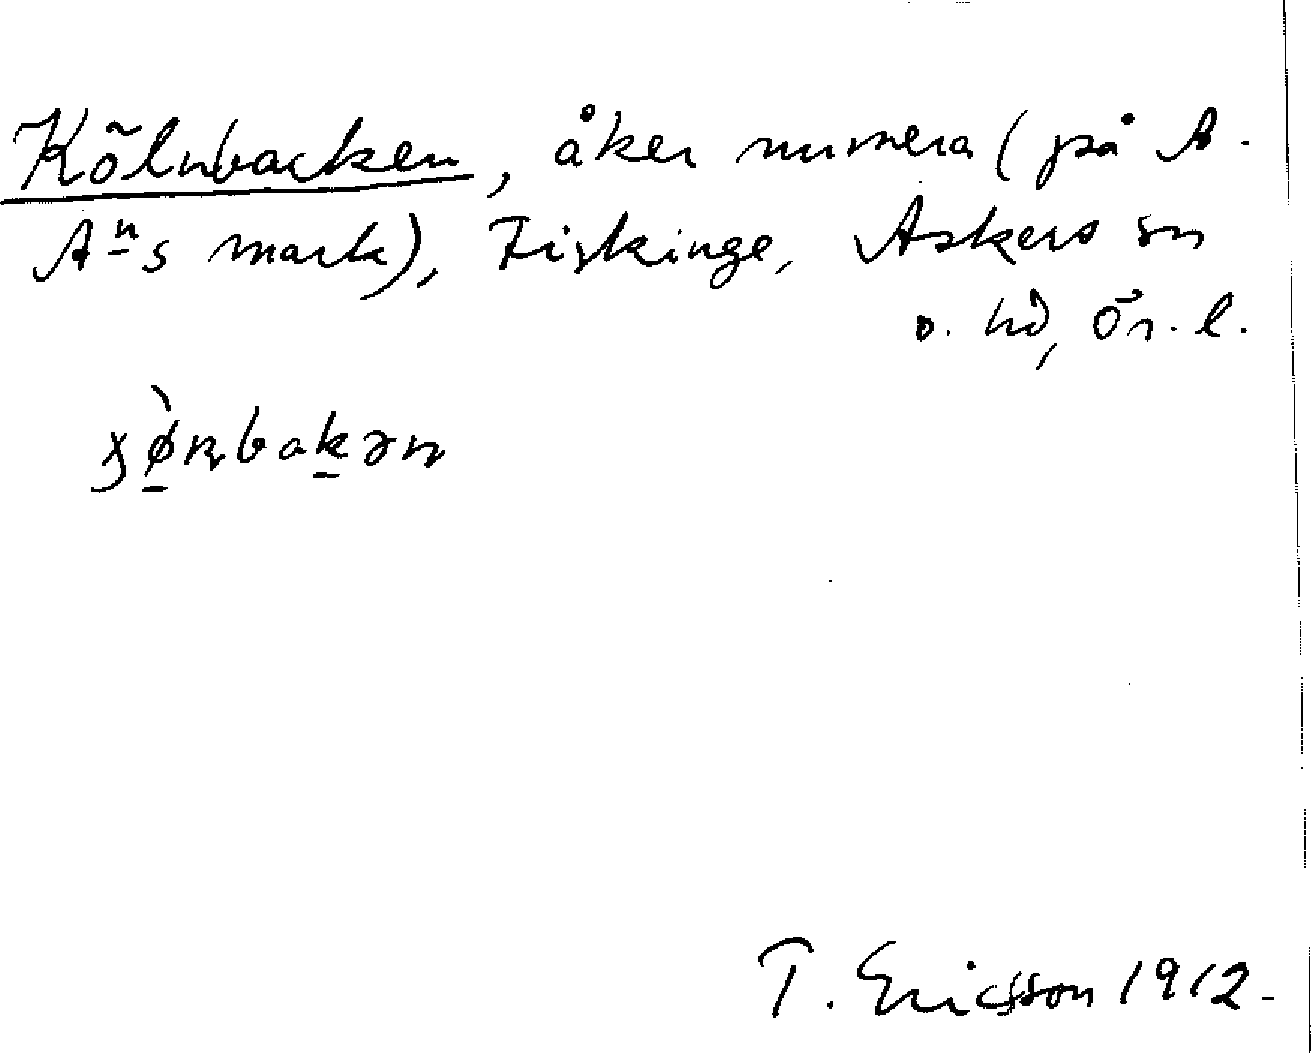 Kölnbacken, åker numera (på A.
Aⁿs mark), Fiskinge, Askers sn
o. hd, Ör. l.
ɣø̀ɳbakən
T. Ericsson 1912.